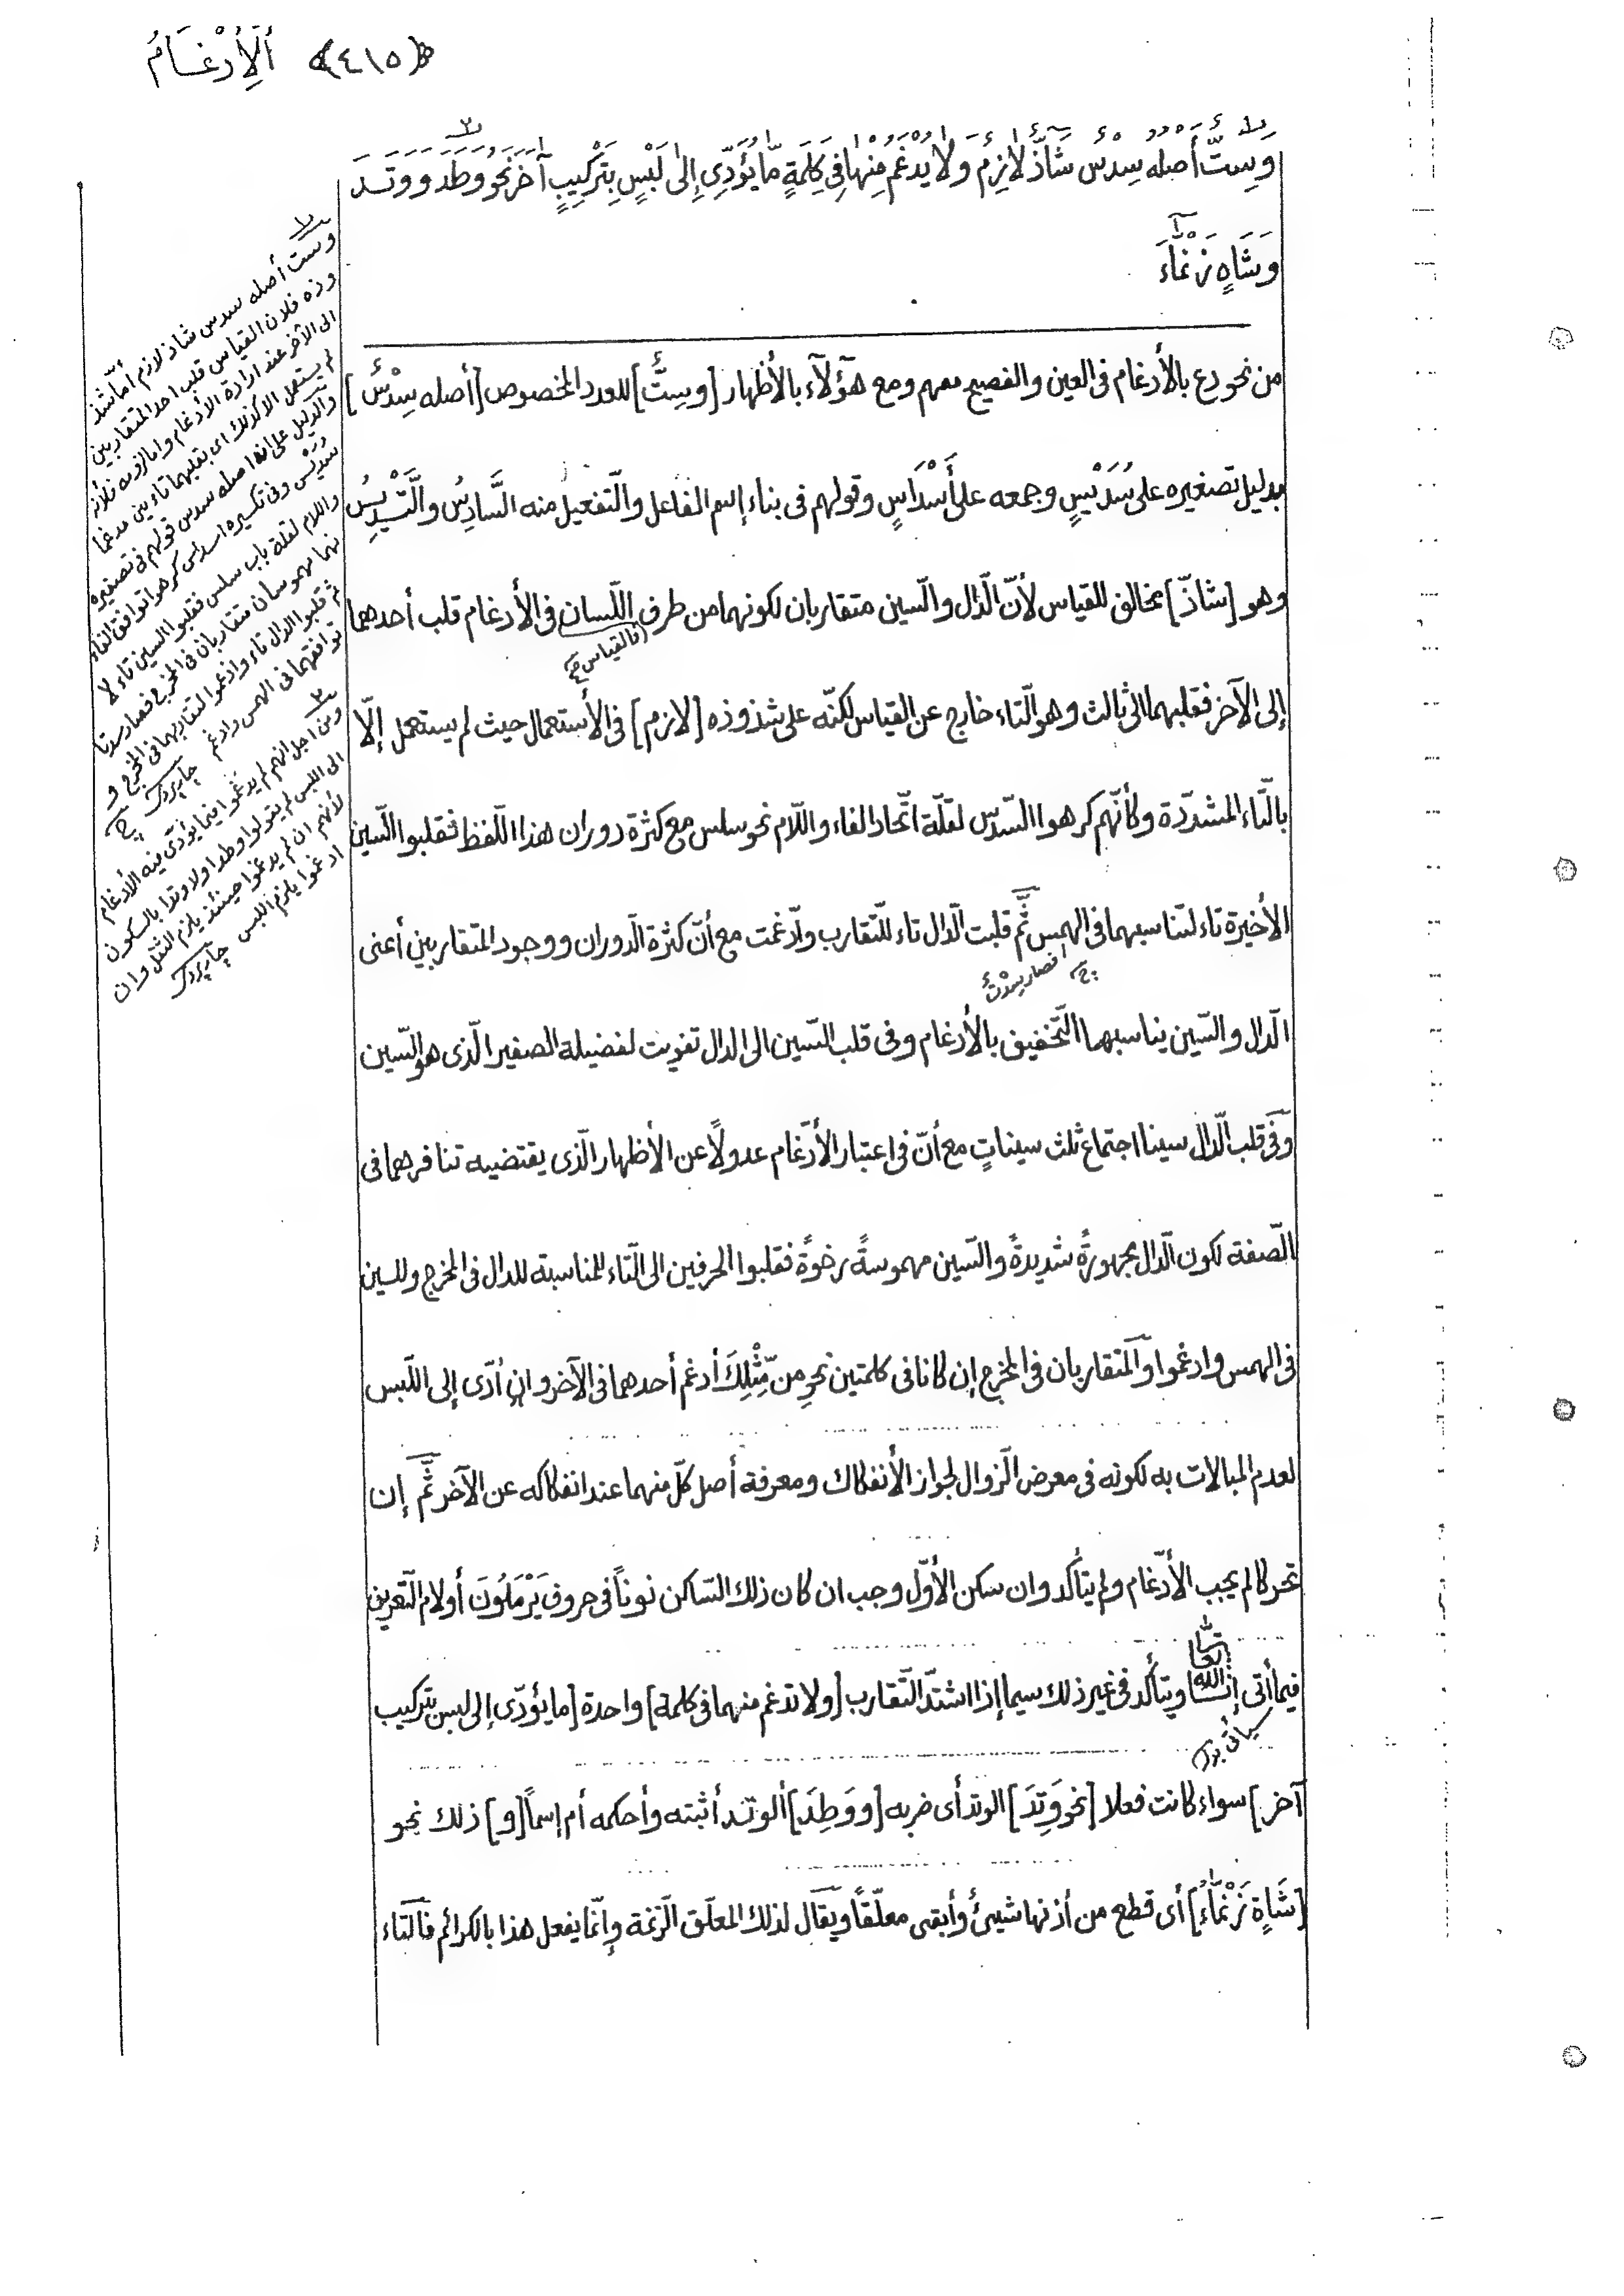 ﴿٤١٥﴾ اَلْاِدْغَامُ
وَسِتٌّ أَصْلُهُ سِدْسٌ شَاذٌّ لَازِمٌ وَلَا يُدْغَمُ مِنْهَا فِى كَلِمَةٍ مَا يُؤَدِّى إِلَى لَبْسٍ بِتَرْكِيبٍ آخَرَ نَحْوُ وَطَدَ وَوَتَدَ
وَشَاةٍ زَنْمَاءَ
من نحو دع بالأدغام فى العين والفصيح معهم ومع هؤلآء بالأظهار [وسِتٌّ] للعدد المخصوص [أصله سِدْسٌ]
بدليل تصغيره على سُدَيْسٍ وجمعه على أَسْدَاسٍ وقولهم فى بناء إسم الفاعل والتّفعيل منه السَّادِسُ والتَّسْدِيسُ
وهو [شاذّ] مخالف للقياس لأنّ الدّال والسّين متقاربان لكونهما من طرف اللّسان فى الأدغام قلب أحدهما
فالقياس صح
إلى الآخر فقلبهما الى ثالث وهو التّاء خارج عن القياس لكنّه على شذوذه [لازم] فى الأستعمال حيث لم يستعمل إلّا
بالتّاء المشدّدة وكأنّهم كرهوا السّدس لقلّة اتّحاد الفاء واللّام نحو سلس مع كثرة دوران هذا اللّفظ فقلبوا السّين
الأخيرة تاء لتناسبهما فى الهمس ثمّ قلبت الدّال تاء للتّقارب وأدّغمت مع أنّ كثرة الدّوران ووجود المتقاربين أعنى
فصار سِدْتٌ
الدّال والسّين يناسبهما التّخفيف بالأدغام وفى قلب السّين الى الدال تفويت لفضيلة الصفير الّذى هو للسّين
وفى قلب الدّال سينا اجتماع ثلث سيناتٍ مع أنّ فى اعتبار الأدّغام عدولًا عن الأظهار الّذى يقتضيه تنافرهما فى
الصّفة لكون الدّال مجهورةً شديدةً والسّين مهموسةً رخوةً فقلبوا الحرفين الى التّاء للمناسبة للدال فى المخرج وللسين
فى الهمس وادغموا والمتقاربان فى المخرج إن كانا فى كلمتين نحو مِن مِّثْلِكَ أدغم أحدهما فى الآخر وان أدّى إلى اللّبس
لعدم المبالات به لكونه فى معرض الزّوال لجواز الأنفكاك ومعرفة أصل كلّ منهما عند انفكاكه عن الآخر ثمّ إن
تحركا لم يجب الأدّغام ولم يتأكد وان سكن الأوّل وجب ان كان ذلك السّاكن نوناً فى حروف يَرْمَلُونَ أو لام التّعريف
فيما أتى إنشاالله تعا ويتأكد فى غير ذلك سيما إذا اشتدّ التّقارب [ولا تدغم منهما فى كلمة] واحدة [ما يؤدّى إلى لبس بتركيب
آخر] سواء كانت فعلا [نحو وَتَدَ] الوتد أى ضربه [ووَطَدَ] ألوتد أثبته وأحكمه أم إسماً [و] ذلك نحو
[شَاةٍ زَنْمَاءَ] أى قطع من أذنها شيئٌ وأبقى معلّقاً ويقال لذلك المعلّق الزّنمة وإنّما يفعل هذا بالكرائم فالتاء
وست أصله سدس شاذ لازم أما شذ
وذه فلان القياس قلب احد المتقاربين
الى الآخر عند ارادة الأدغام واما لزومه فلأنه
لم يستعمل الا كذلك اى بقلبهما تاءين مدغما
والدليل على انه اصله سدس قولهم فى تصغيره
سُدَيْس وفى تكسيره اسداس كرهوا توافق الفاء
واللام لقلة باب سلس فقلبوا السين تاء لا
نهما مهموستان متقاربان فى المخرج فصار سدتا
ثم قلبوا الدال تاء وادغموا لتقاربهما فى المخرج و
توافقهما فى الهمس وادغم جاربردى
ومن اجل انهم لم يدغموا فيما يؤدّى فيه الأدغام
الى اللبس لم يقولوا وطدا ولا وتدا بالسكون
لأنهم ان لم يدغموا حينئذ يلزم الثقل وان
ادغموا يلزم اللبس جاربردى